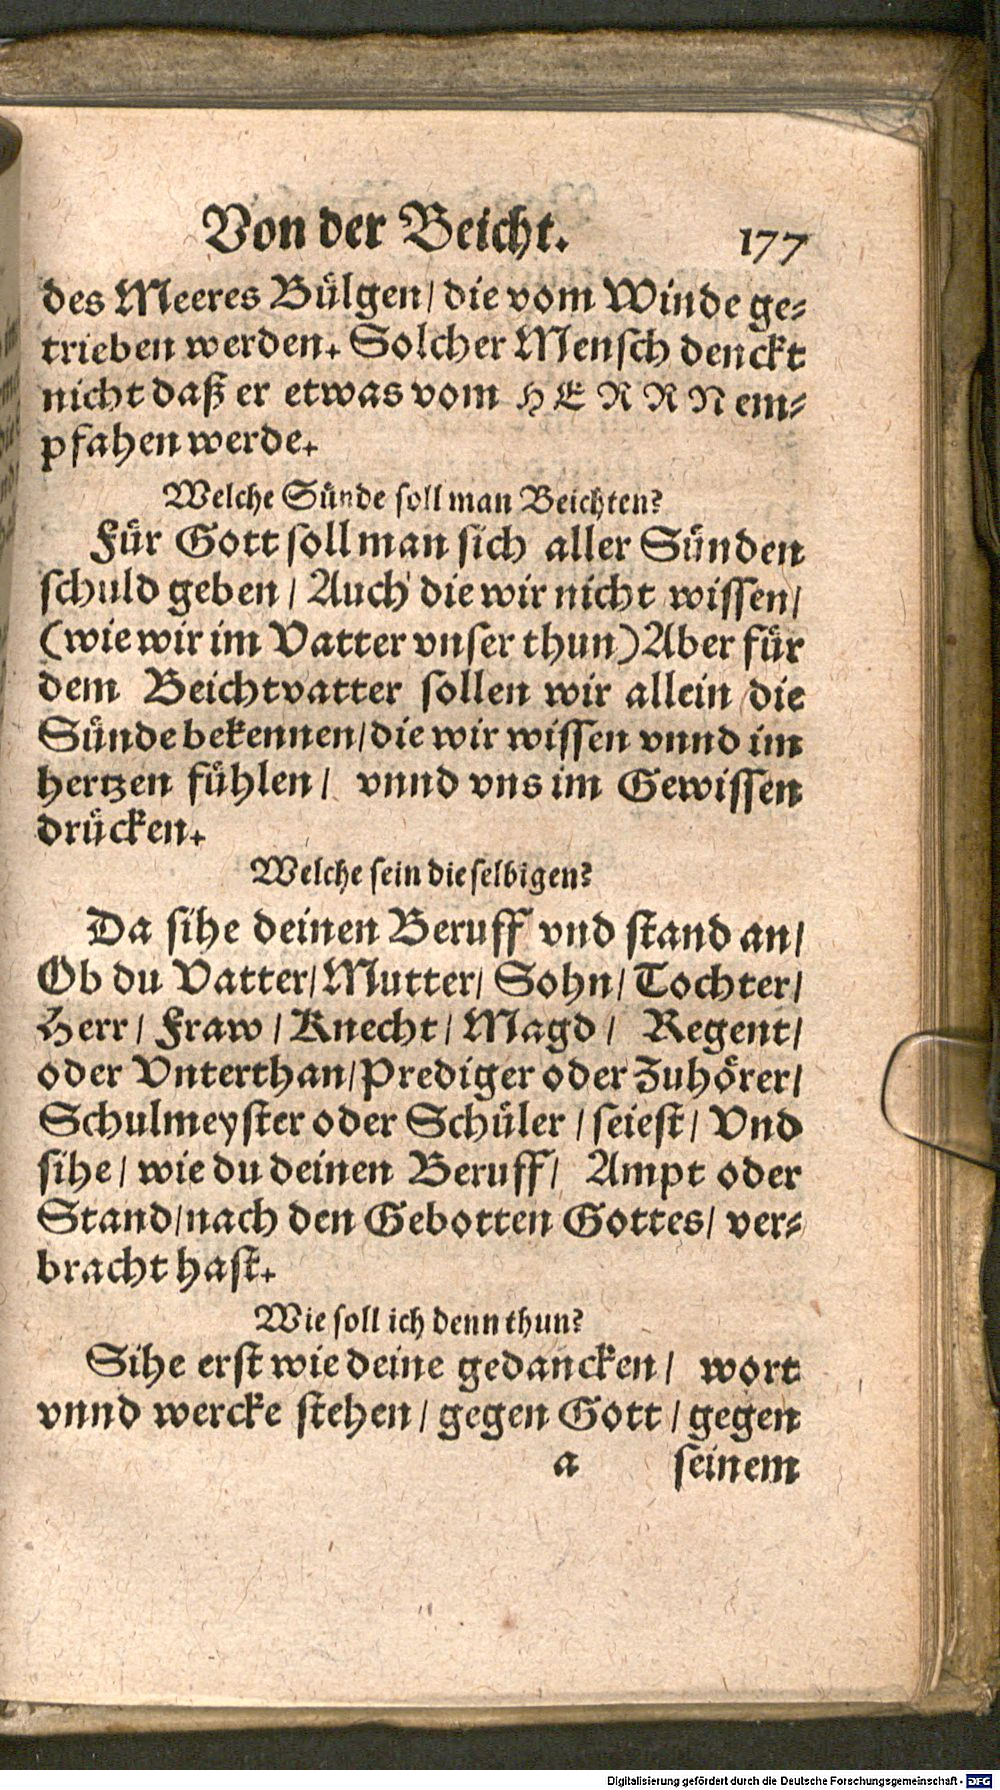 Von der Beicht. 177
des Meeres Bülgen/ die vom Winde ge-
trieben werden. Solcher Mensch denckt
nicht daß er etwas vom HERRN em-
pfahen werde.
Welche Sünde soll man Beichten?
Für Gott soll man sich aller Sünden
schuld geben/ Auch die wir nicht wissen/
(wie wir im Vatter vnser thun) Aber für
dem Beichtvatter sollen wir allein die
Sünde bekennen/ die wir wissen vnnd im
hertzen fühlen/ vnnd vns im Gewissen
drücken.
Welche sein die selbigen?
Da sihe deinen Beruff vnd stand an/
Ob du Vatter/ Mutter/ Sohn/ Tochter/
Herr/ Fraw/ Knecht/ Magd/ Regent/
oder Vnterthan/ Prediger oder Zuhörer/
Schulmeyster oder Schüler/ seiest/ Vnd
sihe/ wie du deinen Beruff/ Ampt oder
Stand/ nach den Gebotten Gottes/ ver-
bracht hast.
Wie soll ich denn thun?
Sihe erst wie deine gedancken/ wort
vnnd wercke stehen/ gegen Gott/ gegen
a seinem
Digitalisierung gefördert durch die Deutsche Forschungsgemeinschaft - DFG